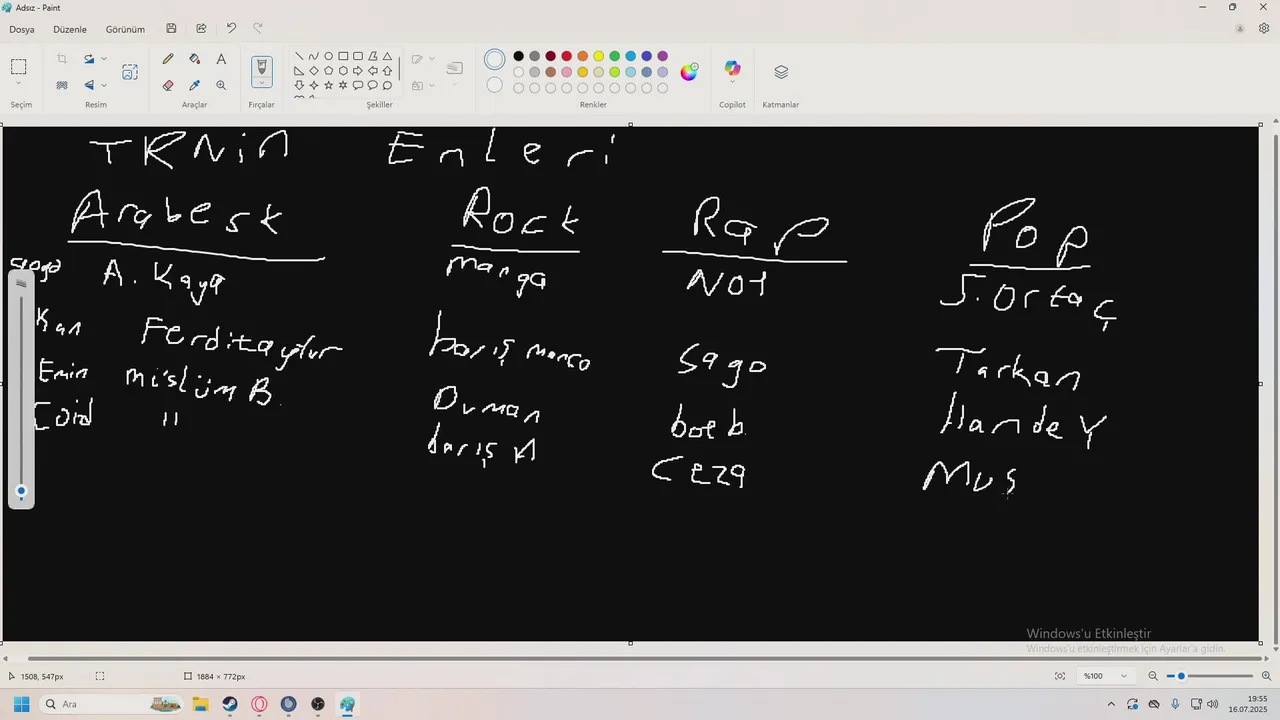 Adsız - Paint
Dosya Düzenle Görünüm
Seçim Resim Araçlar Fırçalar Şekiller Renkler Copilot Katmanlar
TRNin Enleri
Arabesk Rock Rap Pop
A. Kaya manga Not S. Ortaç
Kan Ferditayfur barış manço Sago Tarkan
Emin müslüm B. Duman boeb Hande Y
Coid " barış A Ceza Mus
Windows'u Etkinleştir
Windows'u etkinleştirmek için Ayarlar'a gidin.
1508, 547px 1884 × 772px %100
Ara 19:55
16.07.2025